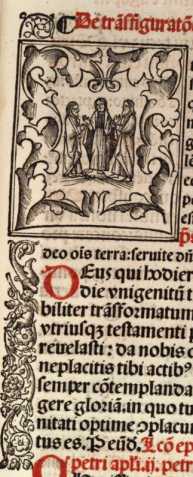 De trãsfiguratõ
deo oĩs terra: seruite dñ
Deus qui hodier
die vnigenitũ t
biliter trãsformatum
vtriusqꝫ testamenti p
reuelasti: da nobis 
neplacitis tibi actibꝰ
semper cõtemplanda
gere gloriã. in quo tu
nitati optime ↄplacui
tus es. Per eũd. A cõ ep
petri apl'i. ij. petri